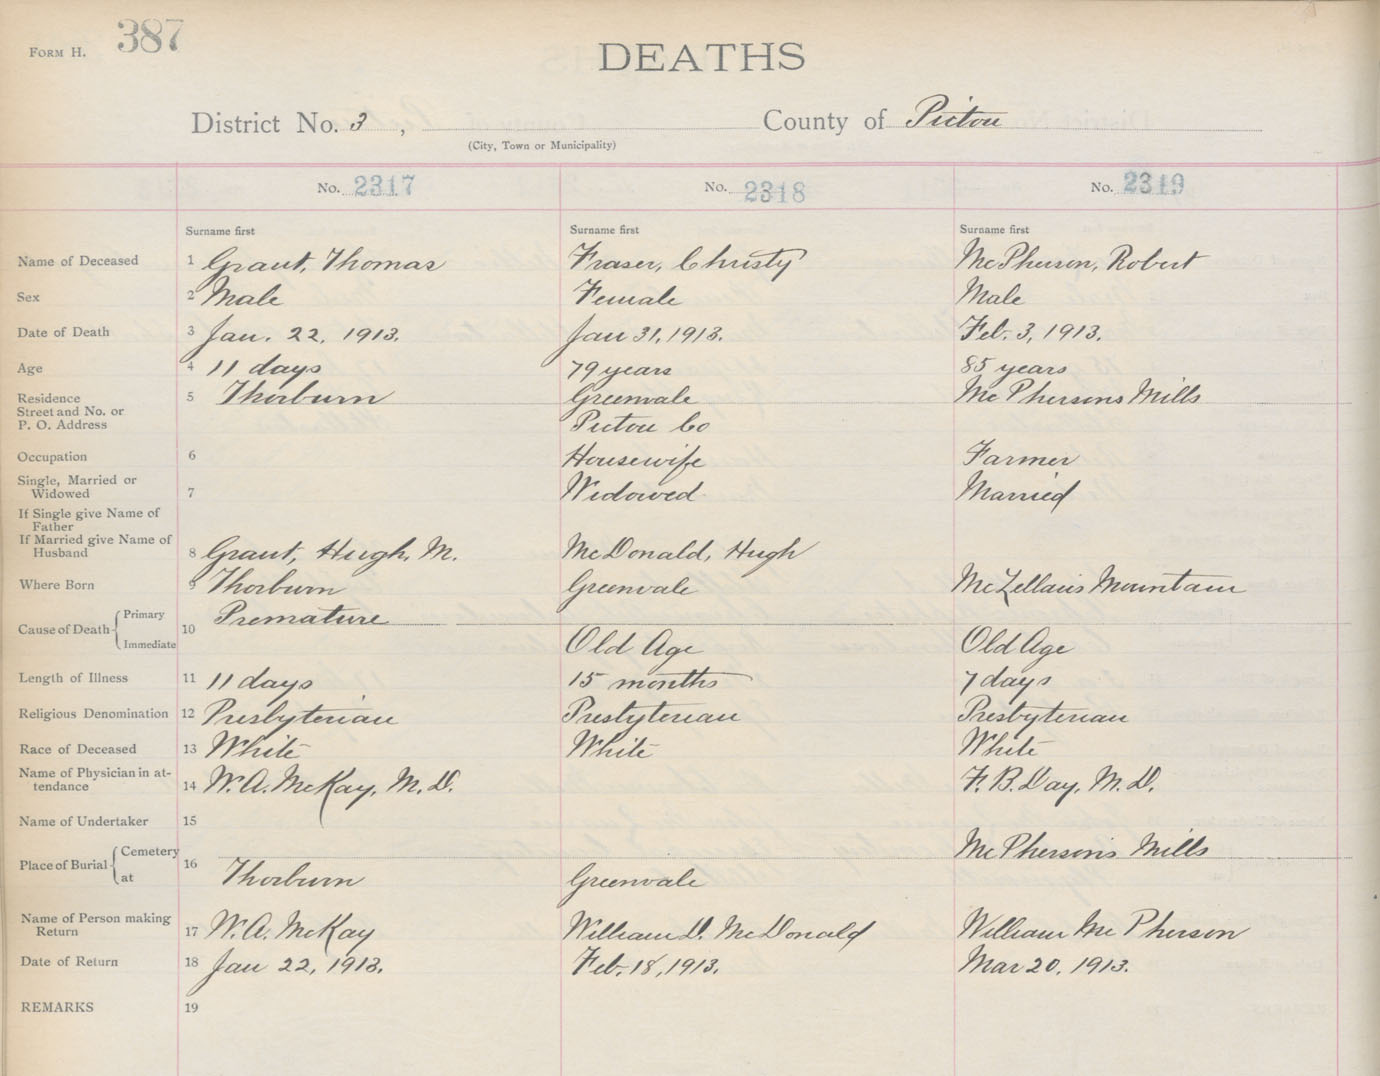 FORM H. 387
DEATHS
District No. 3 , County of Pictou
(City, Town or Municipality)
No. 2317 No. 2318 No. 2319
Surname first Surname first Surname first
Name of Deceased 1 Grant, Thomas Fraser, Christy McPherson, Robert
Sex 2 Male Female Male
Date of Death 3 Jan. 22, 1913. Jan 31, 1913. Feb. 3, 1913.
Age 4 11 days 79 years 85 years
Residence 5 Thorburn Greenvale McPhersons Mills
Street and No. or
P. O. Address Pictou Co
Occupation 6 Housewife Farmer
Single, Married or
Widowed 7 Widowed Married
If Single give Name of
Father
If Married give Name of
Husband 8 Grant, Hugh. M. McDonald, Hugh
Where Born 9 Thorburn Greenvale McLellans Mountain
Primary Premature
Cause of Death 10
Immediate Old Age Old Age
Length of Illness 11 11 days 15 months 7 days
Religious Denomination 12 Presbyterian Presbyterian Presbyterian
Race of Deceased 13 White White White
Name of Physician in at-
tendance 14 W. A. McKay, M. D. F. B. Day, M. D.
Name of Undertaker 15
Cemetery McPherson's Mills
Place of Burial 16
at Thorburn Greenvale
Name of Person making
Return 17 W. A. McKay William D. McDonald William McPherson
Date of Return 18 Jan 22, 1913. Feb. 18, 1913. Mar 20, 1913.
REMARKS 19